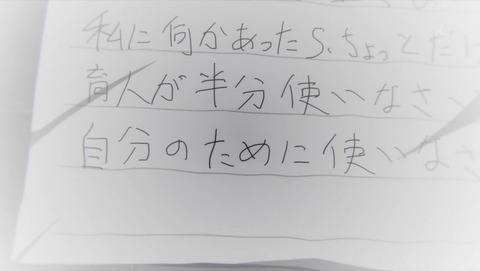 私に何かあったら、ちょっとだけ
育人が半分使いなさい
自分のために使いなさ